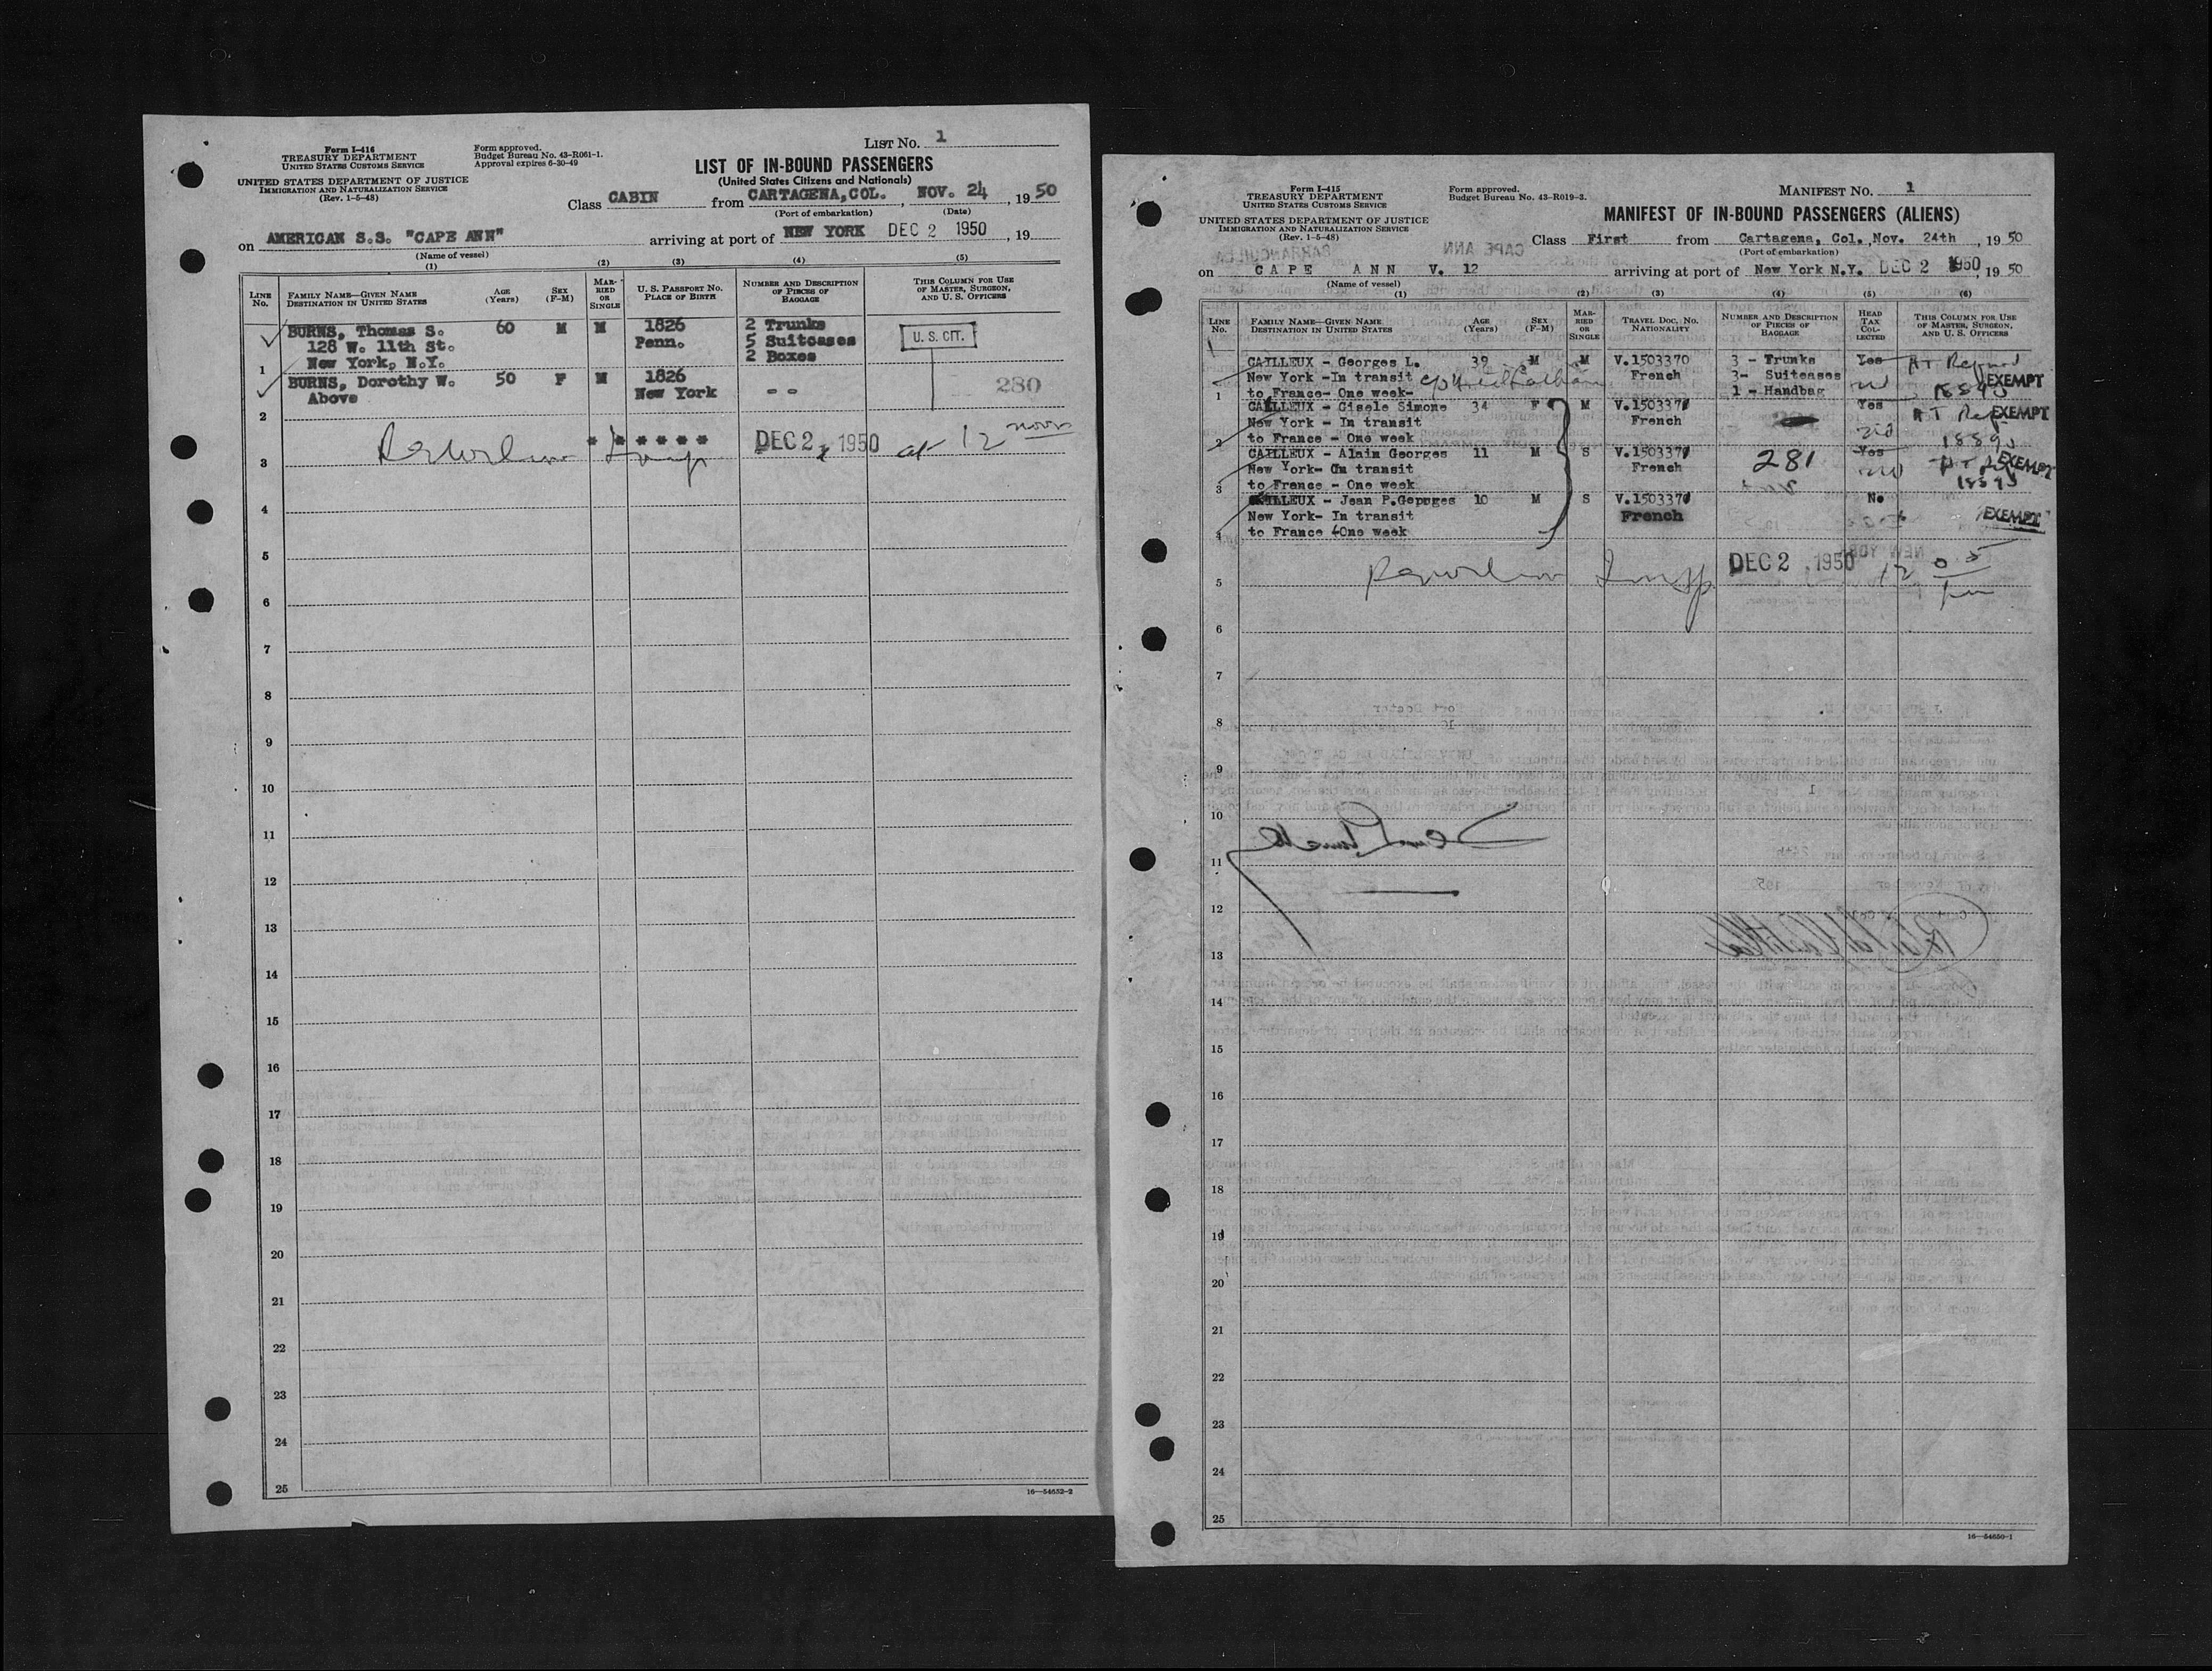 Form I-416
TREASURY DEPARTMENT
UNITED STATES CUSTOMS SERVICE
UNITED STATES DEPARTMENT OF JUSTICE
IMMIGRATION AND NATURALIZATION SERVICE
(Rev. 1-5-48)
Form approved.
Budget Bureau No. 43-R061-1.
Approval expires 6-30-49
LIST NO. 1
LIST OF IN-BOUND PASSENGERS
(United States Citizens and Nationals)
Class CABIN from CARTAGENA,COL. , NOV. 24 , 19 50
(Port of embarkation) (Date)
on AMERICAN S.S. "CAPE ANN" arriving at port of NEW YORK DEC 2 1950 , 19
(Name of vessel)
(1) (2) (3) (4) (5)
LINE No. FAMILY NAME—GIVEN NAME DESTINATION IN UNITED STATES AGE (Years) SEX (F-M) MARRIED OR SINGLE U. S. PASSPORT NO. PLACE OF BIRTH NUMBER AND DESCRIPTION OF PIECES OF BAGGAGE THIS COLUMN FOR USE OF MASTER, SURGEON, AND U. S. OFFICERS
BURNS, Thomas S. 60 M M 1826 2 Trunks
128 W. 11th St. Penn. 5 Suitcases U. S. CIT.
1 New York, N.Y. 2 Boxes
BURNS, Dorothy W. 50 F M 1826 280
Above New York - -
2
3 * * * * * * DEC 2, 1950 at 12 noon
4
5
6
7
8
9
10
11
12
13
14
15
16
17
18
19
20
21
22
23
24
25
16—54652-2
Form I-415
TREASURY DEPARTMENT
UNITED STATES CUSTOMS SERVICE
UNITED STATES DEPARTMENT OF JUSTICE
IMMIGRATION AND NATURALIZATION SERVICE
(Rev. 1-5-48)
Form approved.
Budget Bureau No. 43-R019-3.
MANIFEST NO. 1
MANIFEST OF IN-BOUND PASSENGERS (ALIENS)
Class First from Cartagena, Col. , Nov. 24th , 19 50
(Port of embarkation)
on CAPE ANN V. 12 arriving at port of New York N.Y. DEC 2 1950 , 19 50
(Name of vessel)
(1) (2) (3) (4) (5) (6)
LINE No. FAMILY NAME—GIVEN NAME DESTINATION IN UNITED STATES AGE (Years) SEX (F-M) MARRIED OR SINGLE TRAVEL DOC. NO. NATIONALITY NUMBER AND DESCRIPTION OF PIECES OF BAGGAGE HEAD TAX COLLECTED THIS COLUMN FOR USE OF MASTER, SURGEON, AND U. S. OFFICERS
CAILLEUX - Georges L. 39 M M V.1503370 3 - Trunks Yes
New York -In transit French 3- Suitcases EXEMPT
1 to France- One week- 1 - Handbag
CAILLEUX - Gisele Simone 34 F M V.1503371 Yes EXEMPT
New York - In transit French
2 to France - One week
CAILLEUX - Alain Georges 11 M S V.1503371 281 Yes EXEMPT
New York- In transit French
3 to France - One week
CAILLEUX - Jean P.Georges 10 M S V.1503371 No
New York- In transit French EXEMPT
4 to France -One week
5 DEC 2, 1950 12 05 pm
6
7
8
9
10
11
12
13
14
15
16
17
18
19
20
21
22
23
24
25
16—54650-1